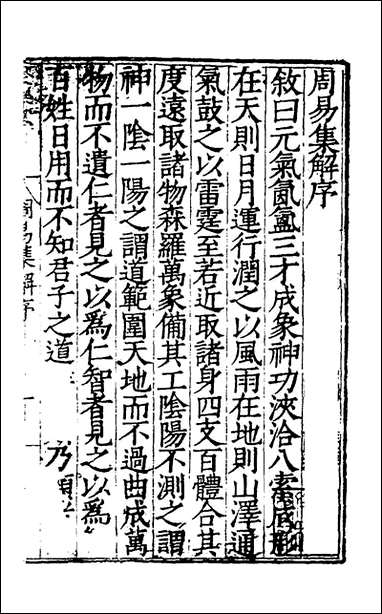 周易集解序
敘曰元氣氤氳三才成象神功浹洽八索成形
在天則日月運行潤之以風雨在地則山澤通
氣鼓之以雷霆至若近取諸身四支百體合其
度遠取諸物森羅萬象備其工陰陽不測之謂
神一陰一陽之謂道範圍天地而不過曲成萬
物而不遺仁者見之以爲仁智者見之以爲
百姓日用而不知君子之道 乃
周易集解序